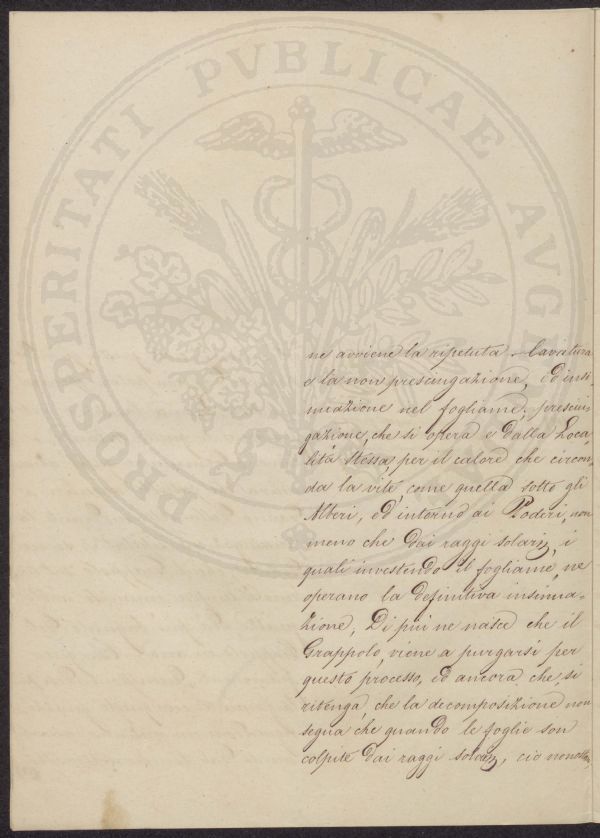 PROSPERITATI PVBLICAE AVGENDAE
ne avviene la ripetuta lavatura
e la non presciugazione, ed insi-
nuazione nel fogliame; presciu-
gazione, che si opera e dalla Loca-
lità stessa, per il calore che circon-
da la vite, come quella sotto gli
Alberi, ed intorno ai Poderi, non
meno che dai raggi solari, i
quali investendo il fogliame, ne
operano la definitiva insinua-
zione; Di più ne nasce che il
Grappolo, viene a purgarsi per
questo processo, ed ancora che, si
ritenga, che la decomposizione non
segua che quando le foglie son
colpite dai raggi solari, ciò nonostan-